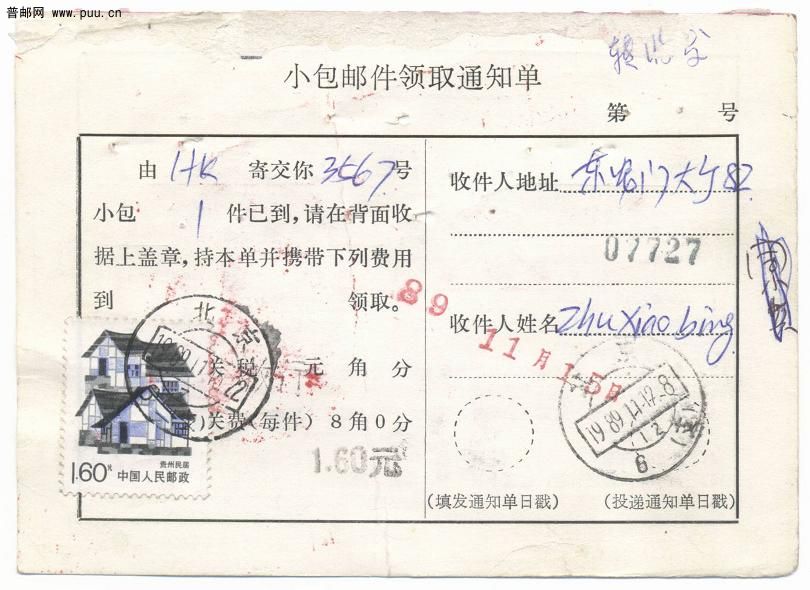 普邮网 www.puu.cn
小包邮件领取通知单
第 号
由 HK 寄交你 3567 号
小包 1 件已到，请在背面收
据上盖章，持本单并携带下列费用
到 领取。
关税 元 角 分
关费(每件) 8角0分
1.60元
收件人地址 大 82
07727
收件人姓名 Zhu Xiao bing
89 11月15日
北京
1989.11.12.8
6
(填发通知单日戳)
(投递通知单日戳)
贵州民居
1.60元
中国人民邮政